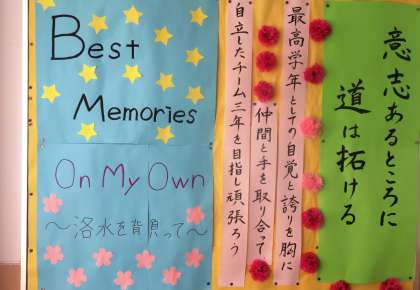 意志あるところに
道は拓ける
最高学年としての自覚と誇りを胸に
仲間と手を取り合って
自立したチーム三年を目指し頑張ろう
Best
Memories
On My Own
～洛水を背負って～